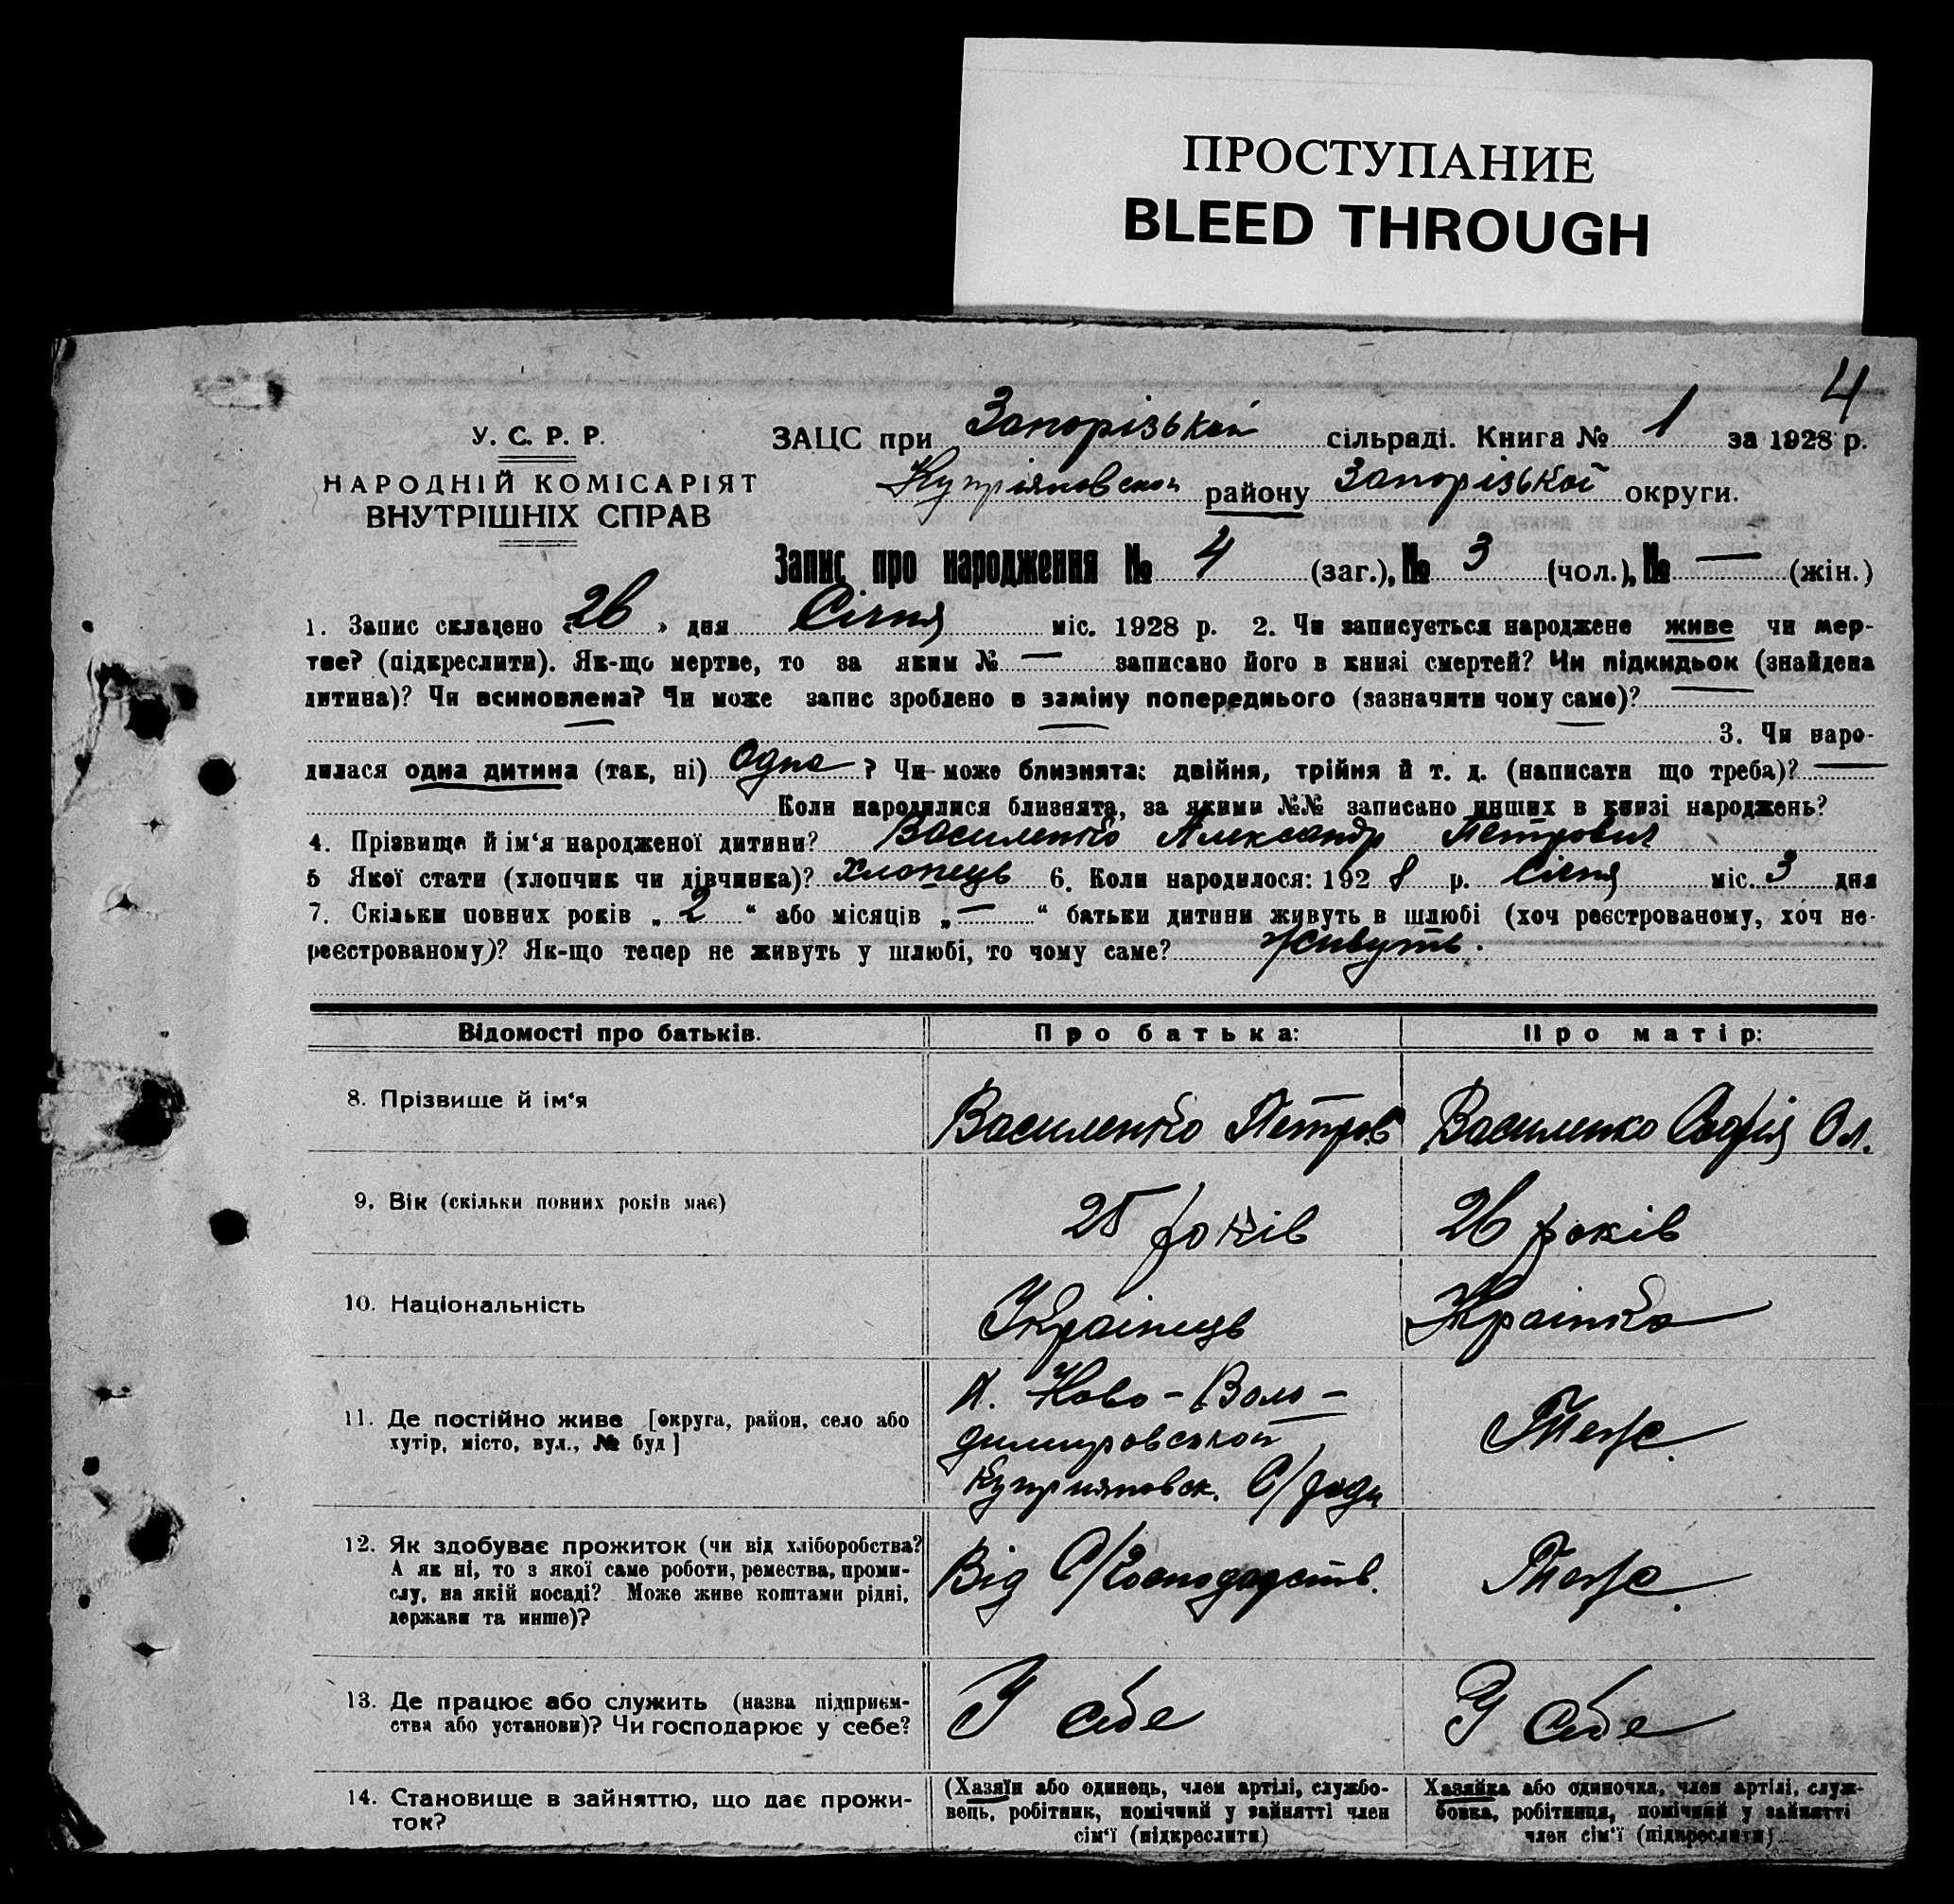 ПРОСТУПАНИЕ
BLEED THROUGH
4
У. С. Р. Р.
НАРОДНІЙ КОМІСАРІЯТ
ВНУТРІШНІХ СПРАВ
ЗАЦС при Запорізькій сільраді. Книга № 1 за 1928 р.
району Запорізької округи.
Запис про народження № 4 (заг.), № 3 (чол.), № — (жін.)
1. Запис складено « 26 » дня Січня міс. 1928 р. 2. Чи записується народжене живе чи мер-
тве? (підкреслити). Як-що мертве, то за яким № — записано його в книзі смертей? Чи підкидьок (знайдена
дитина)? Чи всиновлена? Чи може запис зроблено в заміну попереднього (зазначити чому саме)? —
— — — 3. Чи наро-
дилася одна дитина (так, ні) Одна ? Чи може близнята: двійня, трійня й т. д. (написати що треба)? —
Коли народилися близнята, за якими №№ записано инших в книзі народжень?
4. Прізвище й ім‘я народженої дитини? Василенко Александр Петрович
5 Якої стати (хлопчик чи дівчинка)? Хлопець 6. Коли народилося: 1928 р. Січня міс. 3 дня
7. Скільки повних років „ 2 “ або місяців „ — “ батьки дитини живуть в шлюбі (хоч реєстрованому, хоч не-
реєстрованому)? Як-що тепер не живуть у шлюбі, то чому саме? Живуть.
Відомості про батьків.
Про батька:
Про матір:
8. Прізвище й ім‘я
Василенко Петров
Василенко Софія Ол.
9. Вік (скільки повних років має)
25 років
26 років
10. Національність
Українець
Украінка
11. Де постійно живе [округа, район, село або
хутір, місто, вул., № буд]
Ново-Воло-
димировської
Куприяновск. С/ради
Теж.
12. Як здобуває прожиток (чи від хліборобства?
А як ні, то з якої саме роботи, ремества, проми-
слу, на якій посаді? Може живе коштами рідні,
держави та инше)?
Від С/господарств.
Теж.
13. Де працює або служить (назва підприєм-
ства або установи)? Чи господарює у себе?
У себе
У себе
14. Становище в зайняттю, що дає прожи-
ток?
(Хазяїн або одинець, член артілі, службо-
вець, робітник, помічний у зайнятті член
сім‘ї (підкреслити)
Хазяйка або одиночка, член артілі, служ-
бовка, робітниця, помічний у зайнятті
член сім‘ї (підкреслити)